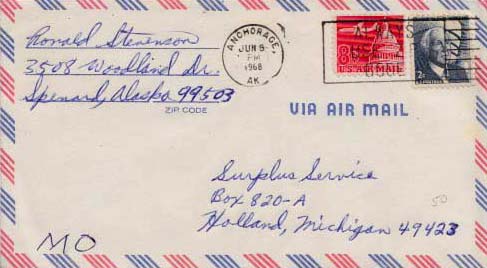 Ronald Stevenson
3508 Woodland Dr.
Spenard, Alaska 99503
ZIP CODE
ANCHORAGE,
JUN 6
PM
1968
AK
8¢
U.S. AIR MAIL
2¢
VIA AIR MAIL
Surplus Service
Box 820-A
Holland, Michigan 49423
50
MO